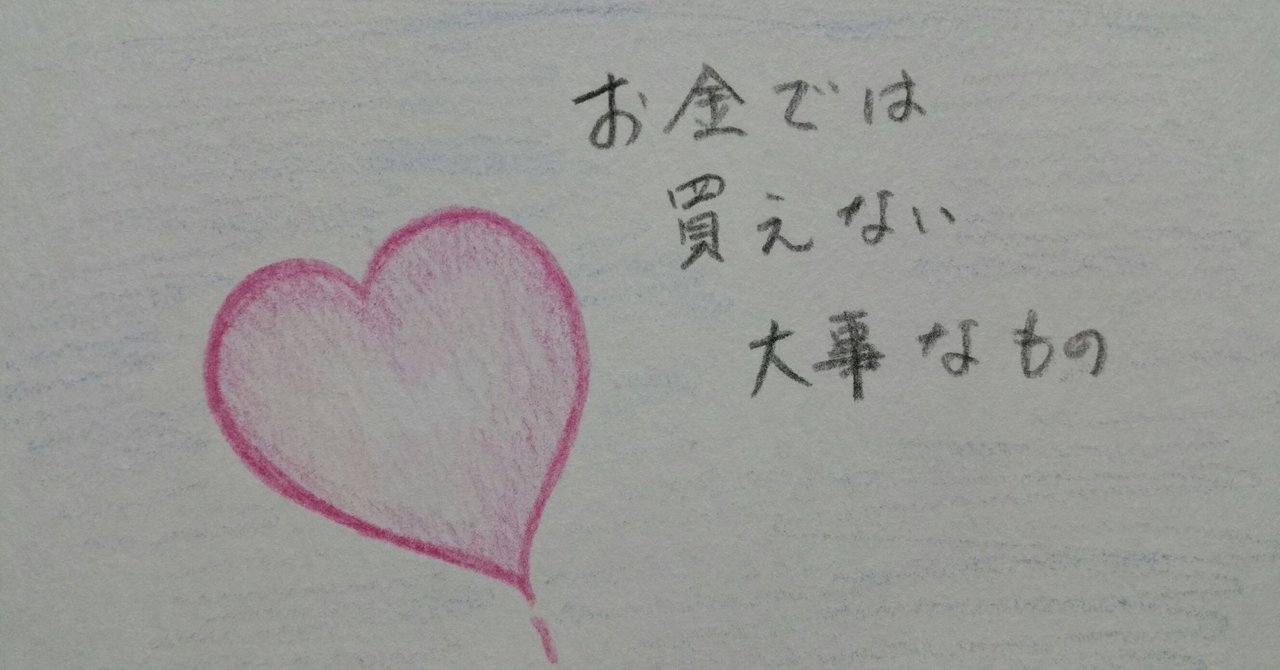 お金では
買えない
大事なもの